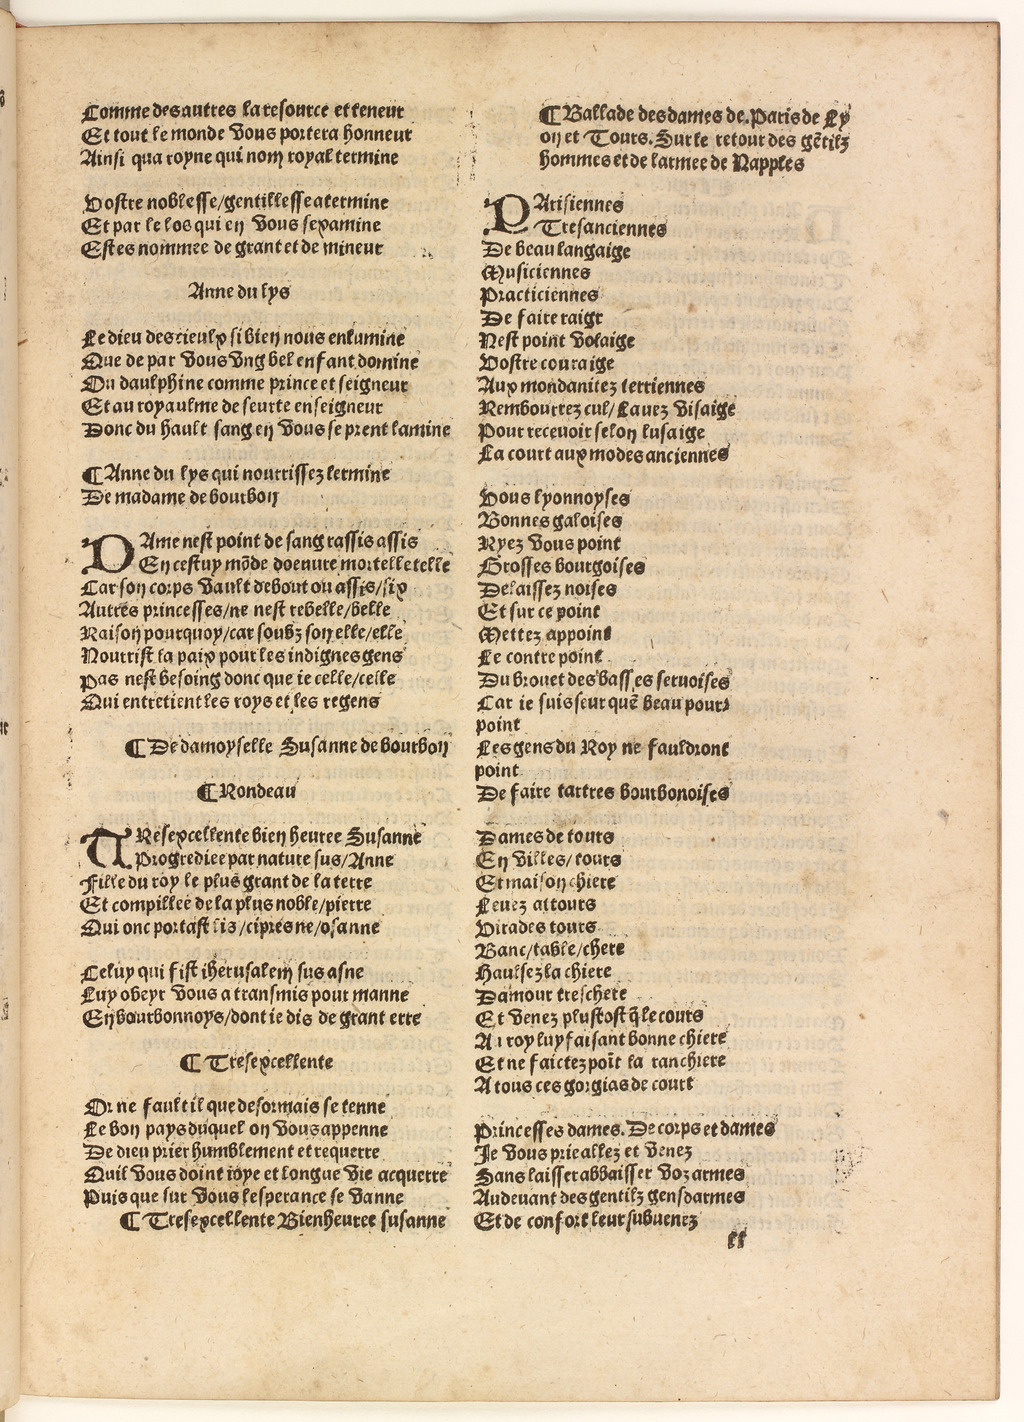 Comme des autres la resource et teneur
Et tout le monde vous portera honneur
Ainsi qua royne qui nom royal termine
Vostre noblesse/gentillesse atermine
Et par le los qui en vous sexamine
Estes nommee de grant et de mineur
Anne du lys
Le dieu des cieulx si bien nous enlumine
Que de par vous vng bel enfant domine
Ou daulphine comme prince et seigneur
Et au royaulme de seurte enseigneur
Donc du hault sang en vous se prent lamine
¶ Anne du lys qui nourrissez lermine
De madame de bourbon
DAme nest point de sang rassis assis
En cestuy mõde doeuure mortelle telle
Car son corps vault debout ou assis/six
Autres princesses/ne nest rebelle/belle
Raison pourquoy/car soubz son elle/elle
Nourrist la paix pour les indignes gens
Pas nest besoing donc que ie celle/celle
Qui entretient les roys et les regens
¶ De damoyselle Susanne de bourbon
¶ Rondeau
TResexcellente bien heuree Susanne
Progrediee par nature sus/Anne
Fille du roy le plus grant de la terre
Et compillee de la plus noble/pierre
Qui onc portast lis/cipres ne/osanne
Celuy qui fist iherusalem sus asne
Luy obeyr vous a transmis pour manne
En bourbonnoys/dont ie dis de grant erre
¶ Tresexcellente
Or ne fault il que desormais se tenne
Le bon pays duquel on vous appenne
De dieu prier humblement et requerre
Quil vous doint ioye et longue vie acquerre
Puis que sur vous lesperance se vanne
¶ Tresexcellente Bienheuree susanne
¶ Ballade des dames de. Paris de Ly
on et Tours. Sur le retour des gẽtilz
hommes et de larmee de Napples
PArisiennes
Tresanciennes
De beau langaige
Musiciennes
Practiciennes
De faire raige
Nest point volaige
Vostre couraige
Aux mondanitez terriennes
Rembourrez cul/Lauez visaige
Pour receuoir selon lusaige
La court aux modes anciennes
Vous lyonnoyses
Bonnes galoises
Ryez vous point
Grosses bourgoises
Delaissez noises
Et sur ce point
Mettez appoint
Le contre point
Du brouet des basses seruoises
Car ie suis seur quẽ beau pour
point
Les gens du Roy ne fauldront
point
De faire tartres bourbonoises
Dames de tours
En villes/tours
Et maison chiere
Leuez attours
Virades tours
Banc/table/chere
Haulsez la chiere
Damour treschere
Et venez plustost q̃ le cours
Au roy luy faisant bonne chiere
Et ne faictez poĩt la ranchiere
A tous ces gorgias de court
Princesses dames. De corps et dames
Je vous prie allez et venez
Sans laisser abbaisser voz armes
Audeuant des gentilz gensdarmes
Et de confort leur subuenez